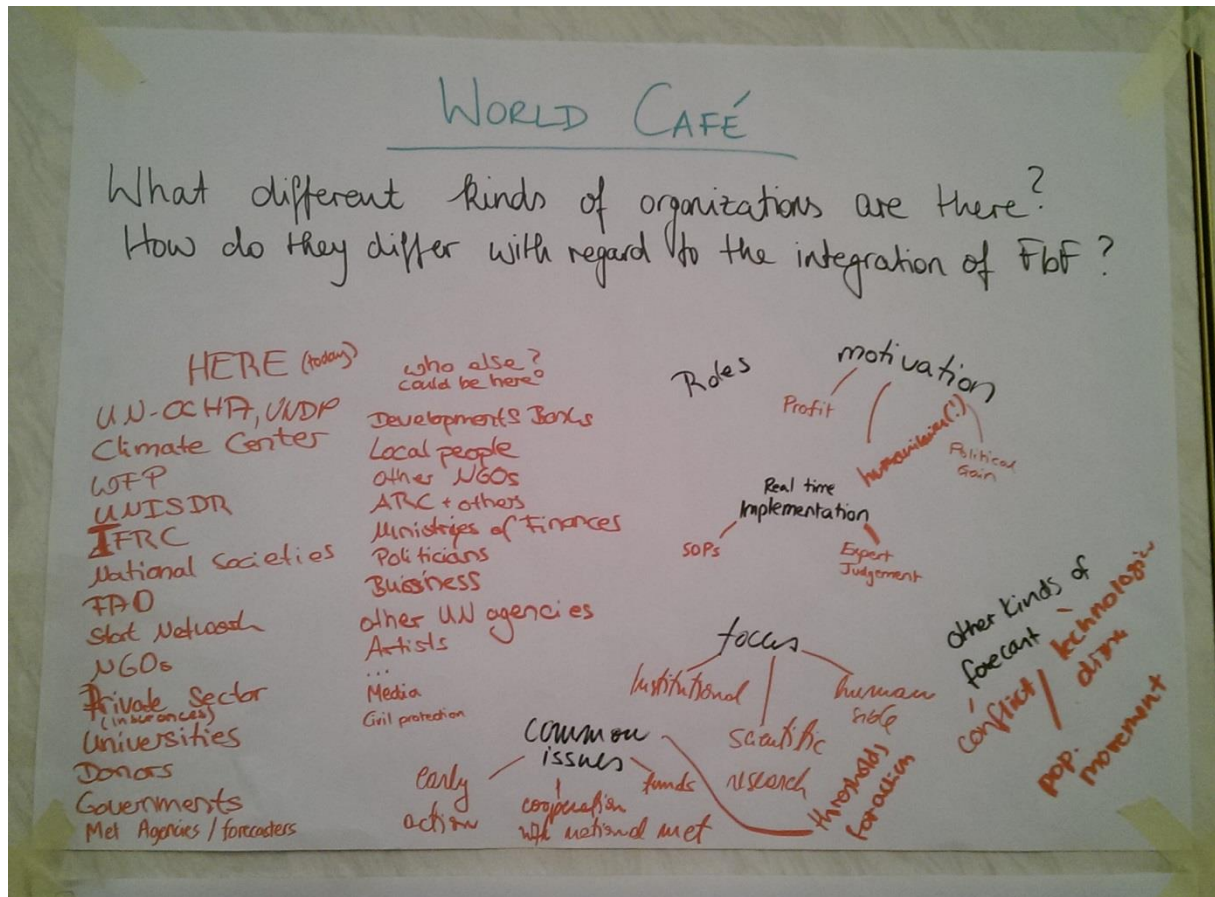 WORLD CAFÉ
What different kinds of organizations are there?
How do they differ with regard to the integration of FbF?
HERE (today)
UN-OCHA, UNDP
Climate Center
WFP
UNISDR
IFRC
National Societies
FAO
Start Network
NGOs
Private Sector
(insurances)
Universities
Donors
Governments
Met Agencies / forecasters
who else?
could be here?
Developments Banks
Local people
other NGOs
ARC + others
Ministries of Finances
Politicians
Bussiness
other UN agencies
Artists
...
Media
Civil protection
Roles
motivation
Profit
humanitarian (!)
Political
Gain
Real time
Implementation
SOPs
Expert
Judgement
focus
Institutional
scientific
research
human
side
common
issues
early
action
cooperation
with national met
funds
thresholds
for action
other kinds of
forecast
conflict
pop.
movement
technologic